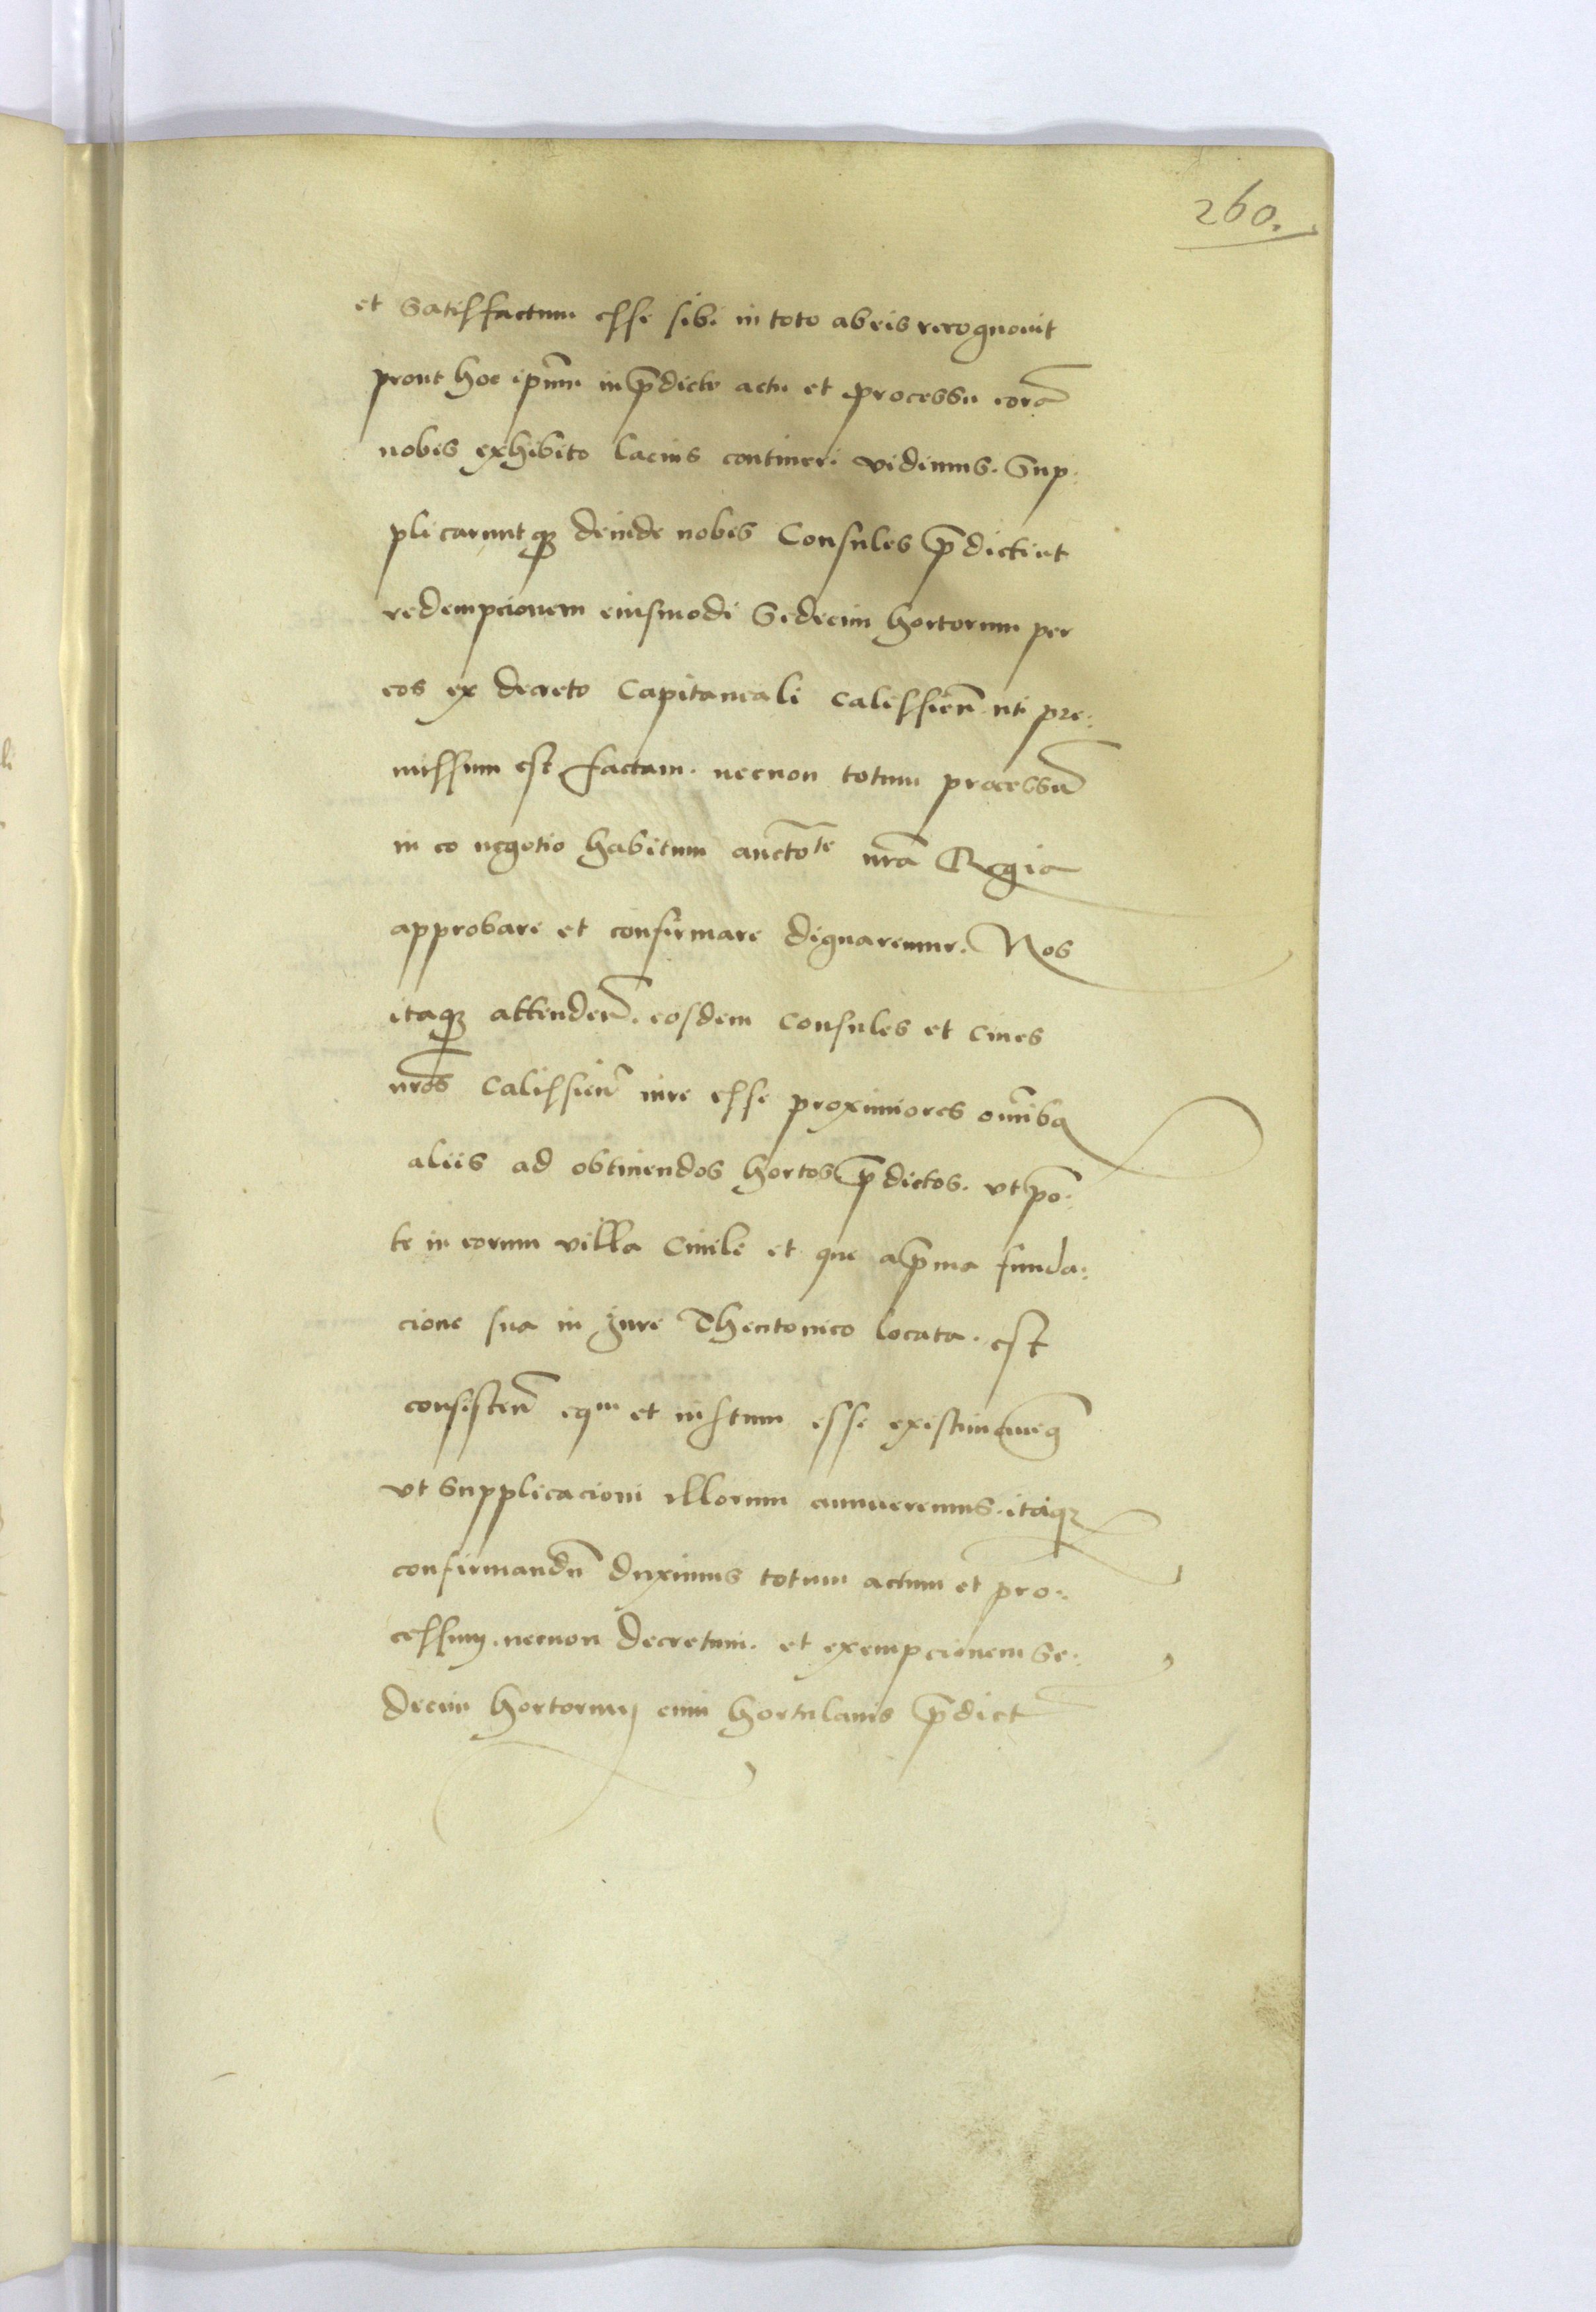 260.
et Satisfactum esse sibi in toto ab eis recognouit
prout hoc ip̃um in p̃dicto actu et processu corã
nobis exhibito lacius contineri vidimus. Sup:
plicaruntq₃ deinde nobis Consules p̃dicti ut
redempcionem eiusmodi Sedecim hortorum per
eos ex decreto Capitaneali Calissien̄ uti pre:
missum est factam. necnon totum processũ
in eo negotio habitum auctoᵗᵉ nr̃a Regia
approbare et confirmare dignaremur. Nos
itaq₃ attenden̄. eosdem Consules et Ciues
nr̃os Calissien̄ iure esse proximiores om̃ibꝗ
aliis ad obtinendos hortos p̃dictos. vt po:
te in eorum villa Ciuili et que a p̃ma funda:
cione sua in Jure Theutonico locata. est
consisten̄ equᵐ et iustum esse existimauimꝗ
vt Supplicacioni illorum annueremus. itaq₃
confirmandũ duximus totum actum et pro:
cessum. necnon decretum. et exempcionem Se:
decim hortorum cum hortulanis p̃dict